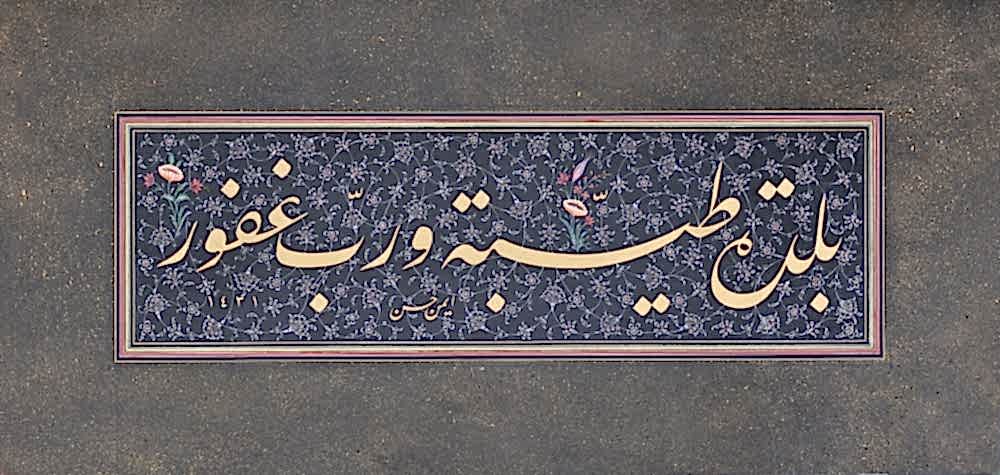 بلدة طيبة ورب غفور
ايمن حسن
١٤٢١